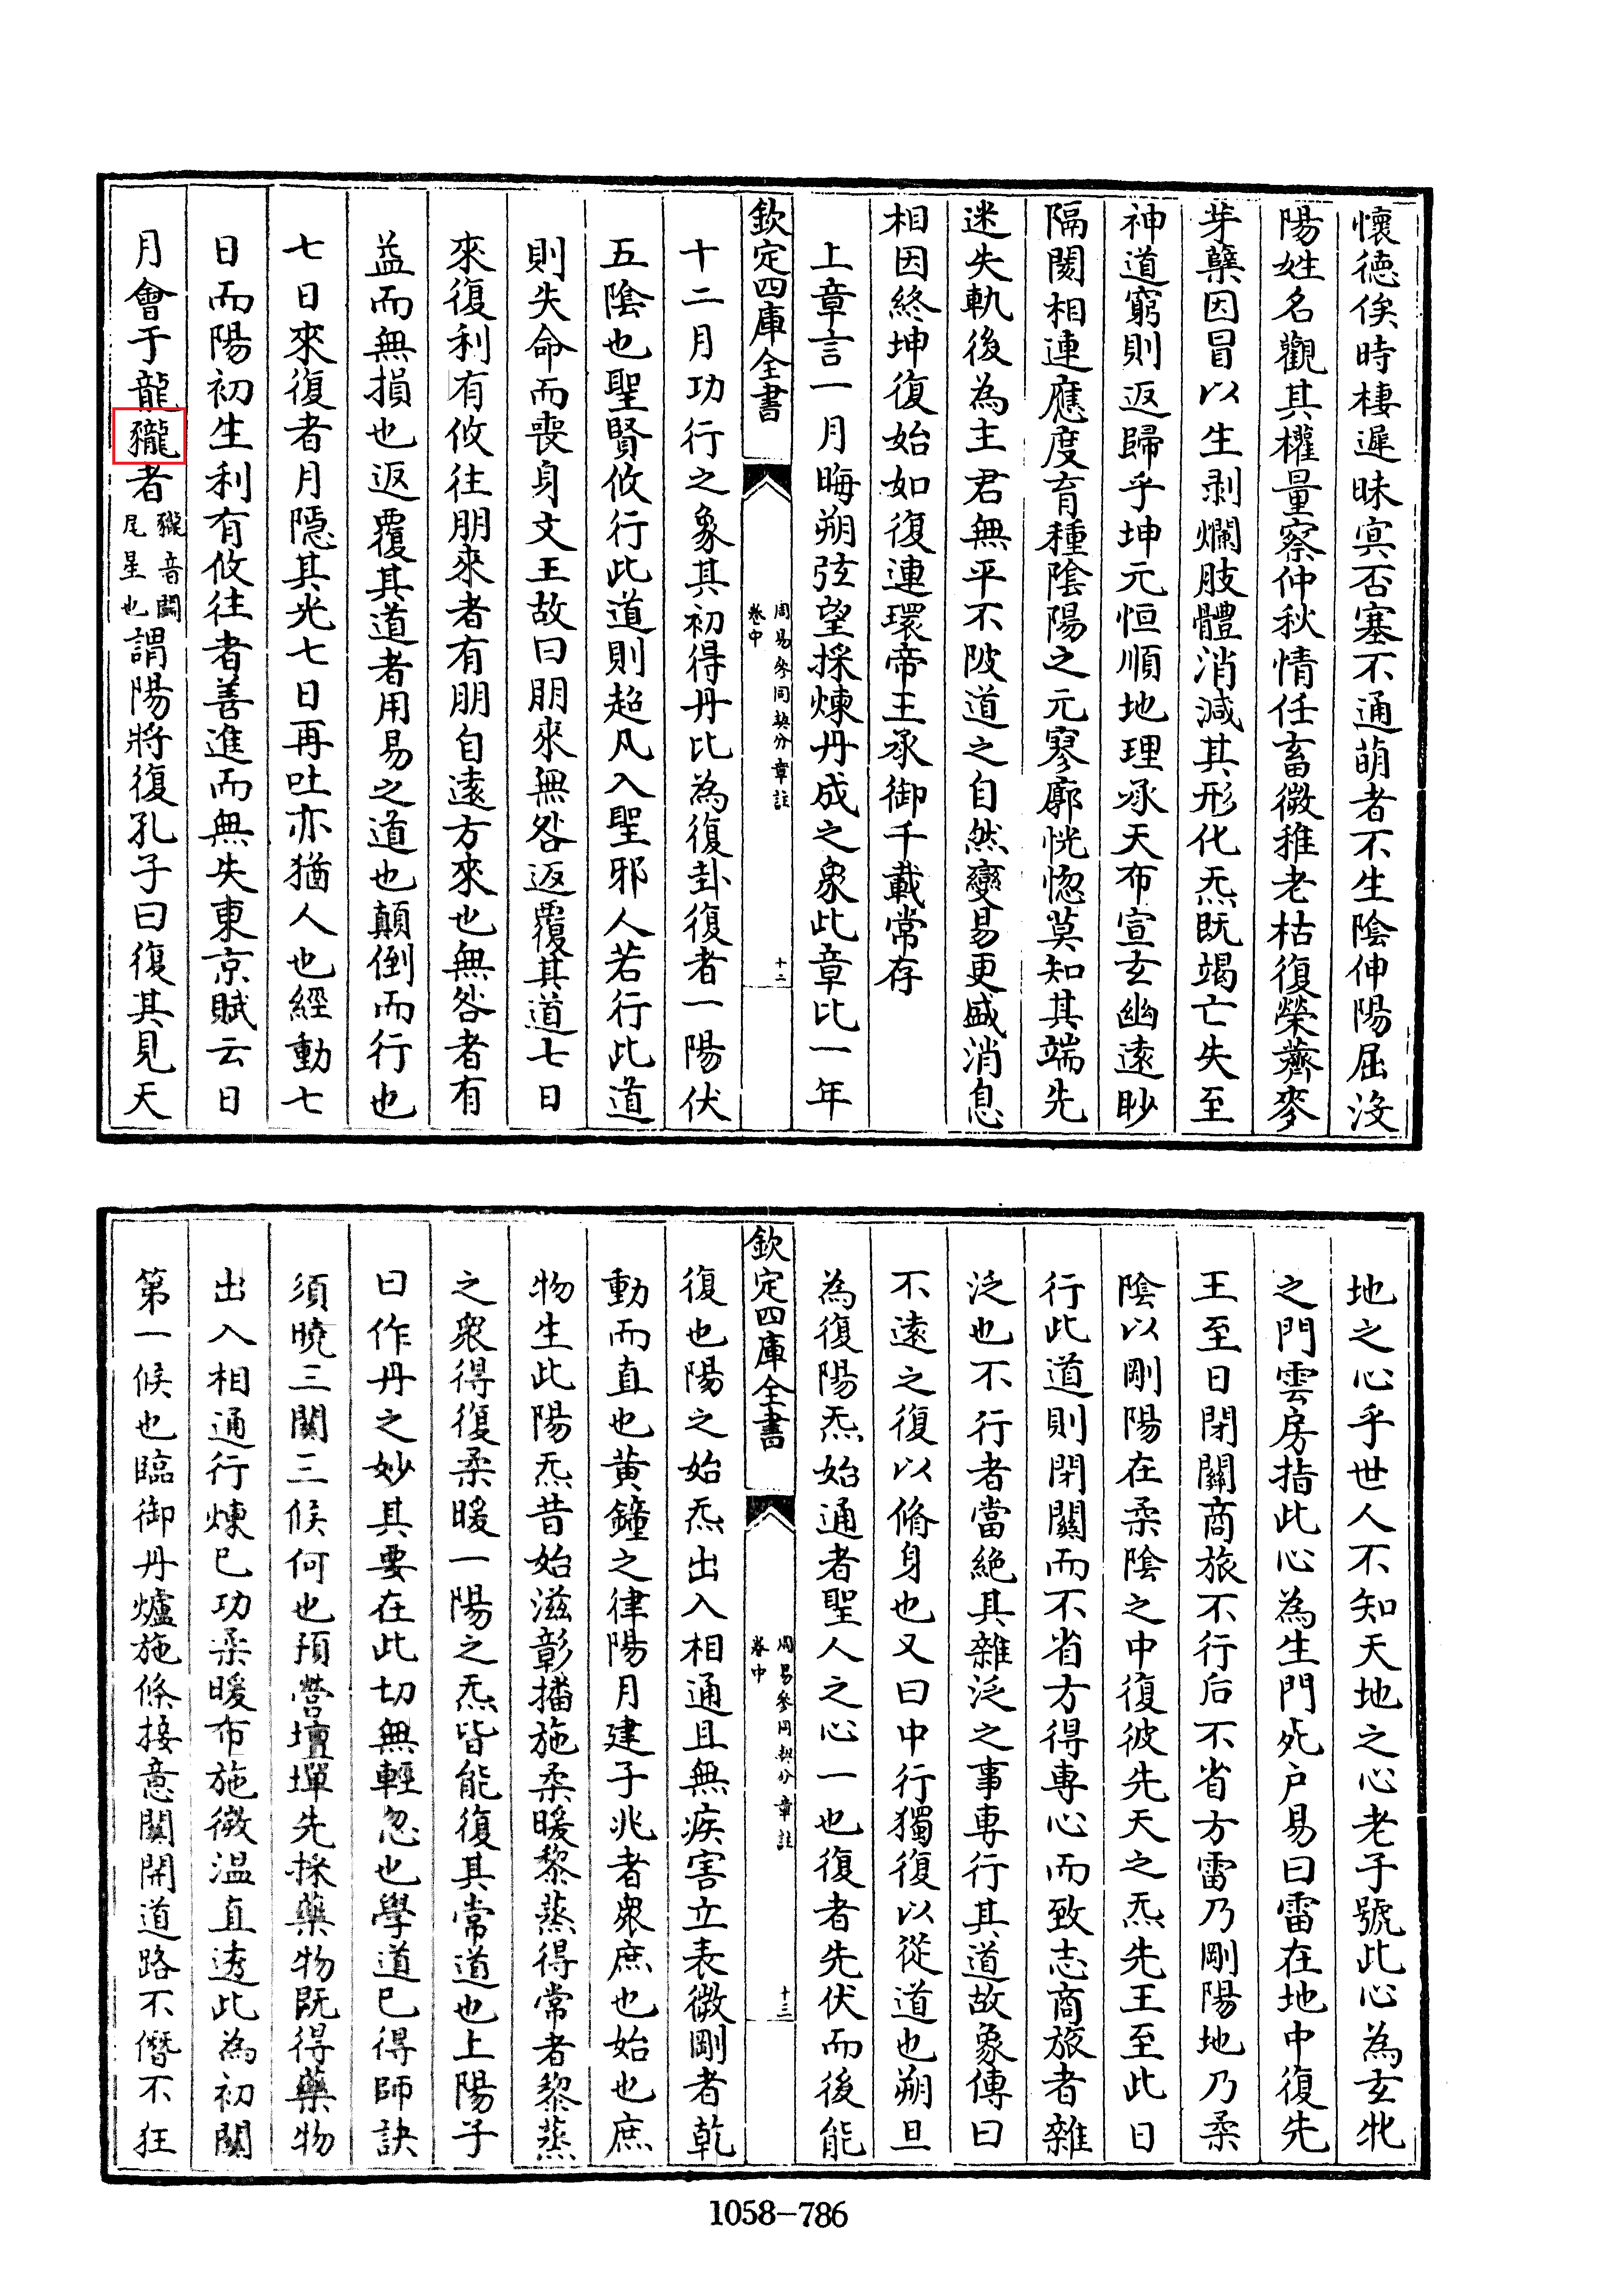 懷德俟時棲遲昧㝠否塞不通萌者不生陰伸陽屈没
陽姓名觀其權量察仲秋情任畜微稚老枯復榮薺麥
芽蘖因冒以生剥爛肢體消減其形化炁既竭亡失至
神道窮則返歸乎坤元恒順地理承天布宣玄幽遠眇
隔閡相連應度育種陰陽之元寥廓恍惚莫知其端先
迷失軌後為主君無平不陂道之自然變易更盛消息
相因終坤復始如復連環帝王承御千載常存
上章言一月晦朔弦望採煉丹成之象此章比一年
欽定四庫全書
周易參同契分章註
卷中
十二
十二月功行之象其初得丹比為復卦復者一陽伏
五陰也聖賢攸行此道則超凡入聖邪人若行此道
則失命而喪身文王故曰朋來無咎返覆其道七日
來復利有攸往朋來者有朋自遠方來也無咎者有
益而無損也返覆其道者用易之道也顛倒而行也
七日來復者月隱其光七日再吐亦猶人也經動七
日而陽初生利有攸往者善進而無失東京賦云日
月會于龍者
音鬬
尾星也
謂陽將復孔子曰復其見天
地之心乎世人不知天地之心老子號此心為玄牝
之門雲房指此心為生門死户易曰雷在地中復先
王至日閉關商旅不行后不省方雷乃剛陽地乃柔
陰以剛陽在柔陰之中復彼先天之炁先王至此日
行此道則閉關而不省方得專心而致志商旅者雜
泛也不行者當絶其雜泛之事專行其道故象傳曰
不遠之復以脩身也又曰中行獨復以從道也朔旦
為復陽炁始通者聖人之心一也復者先伏而後能
欽定四庫全書
周易參同契分章註
卷中
十三
復也陽之始炁出入相通且無疾害立表微剛者乾
動而直也黄鐘之律陽月建子兆者衆庶也始也庶
物生此陽炁昔始滋彰播施柔暖黎蒸得常者黎蒸
之衆得復柔暖一陽之炁皆能復其常道也上陽子
曰作丹之妙其要在此切無輕忽也學道已得師訣
須曉三關三候何也預營壇墠先採藥物既得藥物
出入相通行煉已功柔暖布施微温直透此為初關
第一候也臨御丹爐施條接意關開道路不僭不狂
1058-786